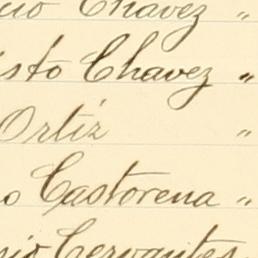 cio Chavez "
isto Chavez "
Ortiz "
o Castorena "
nio Cervantes "